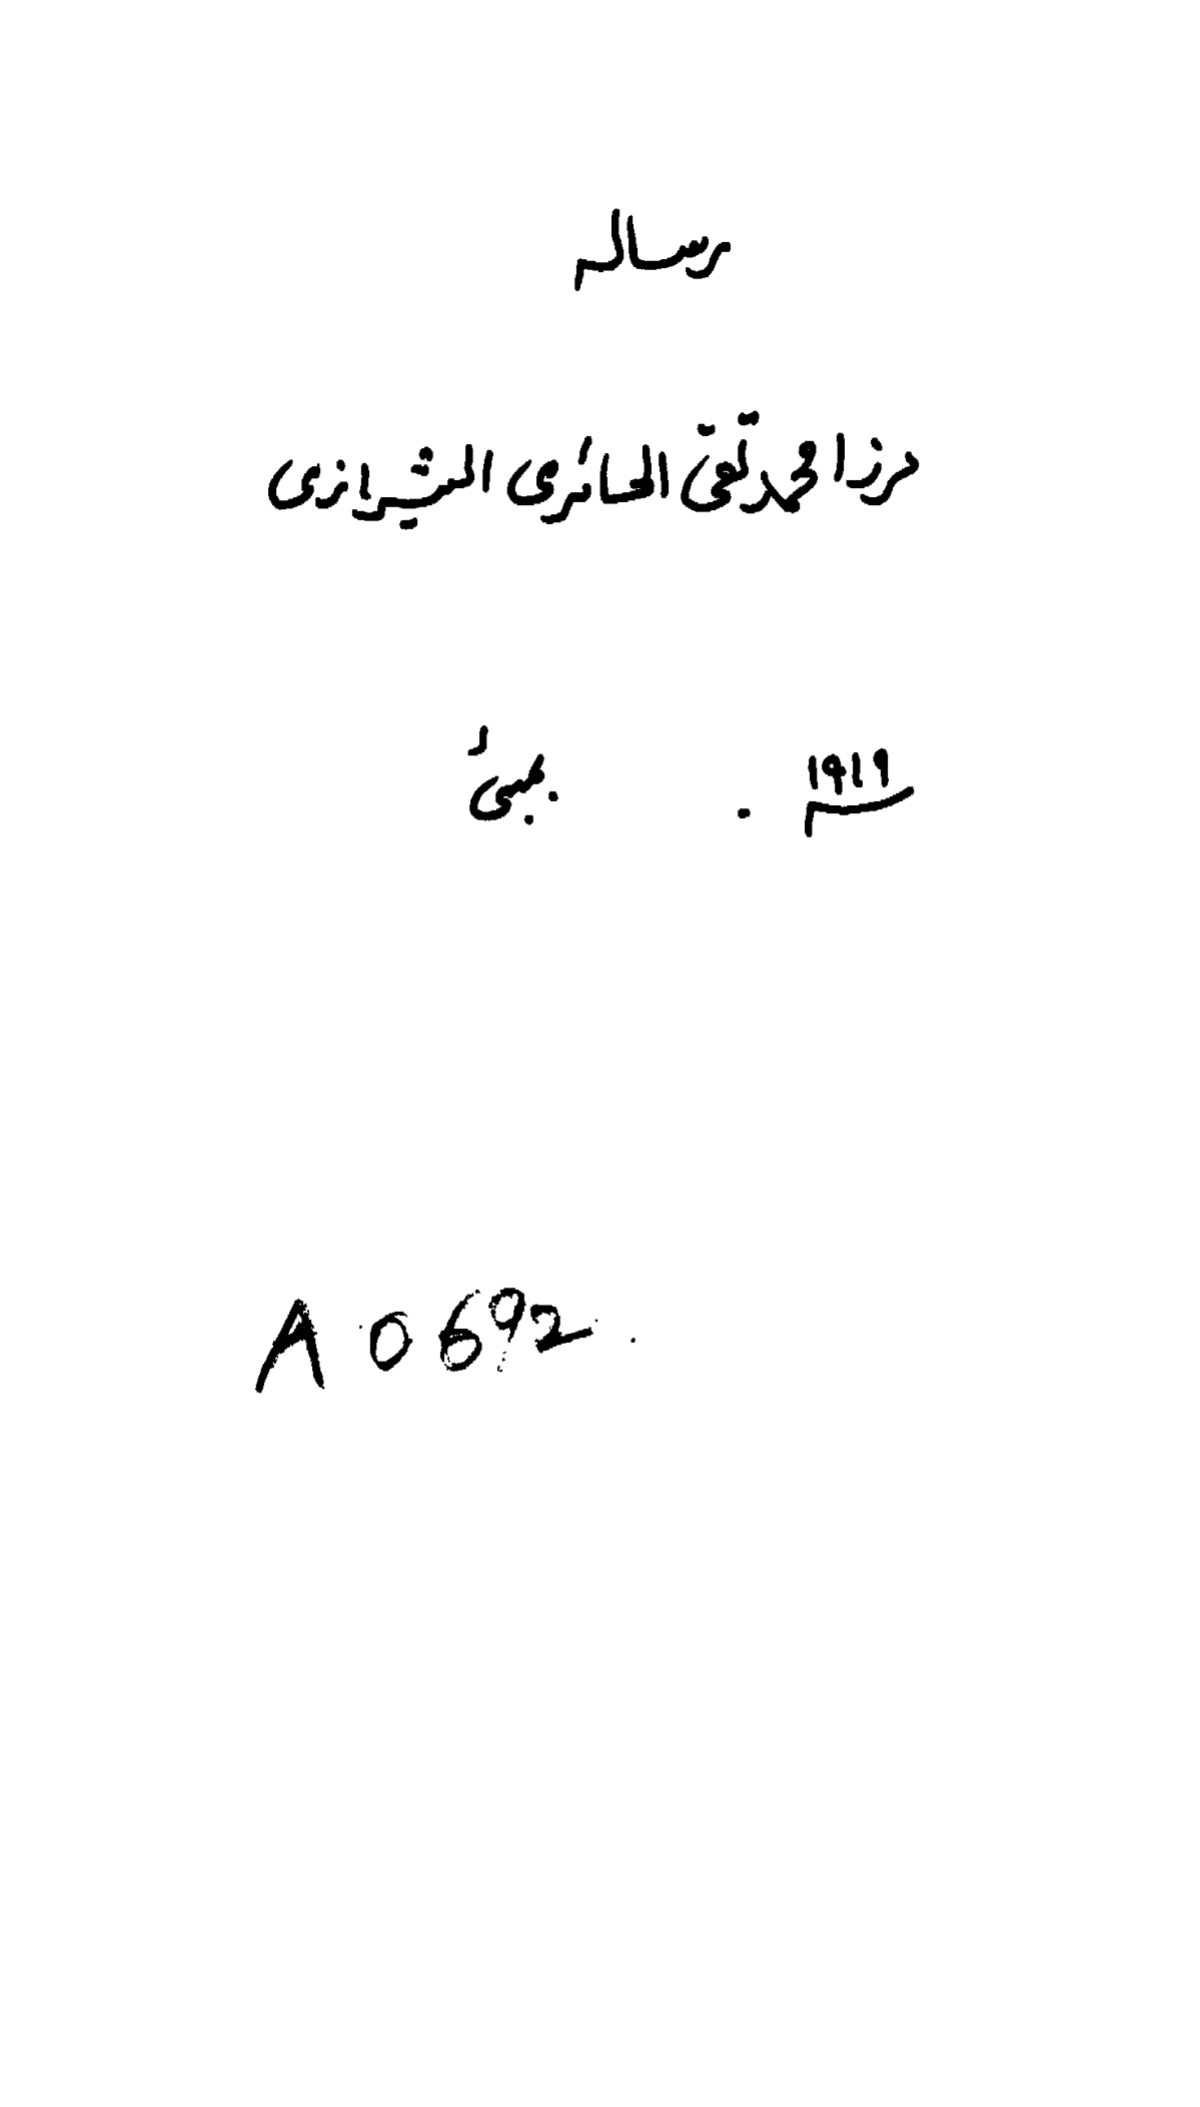 رسالہ
مرزا محمد تقی الحائری الشیرازی
۱۹۱۹ بمبئی
A 0692.